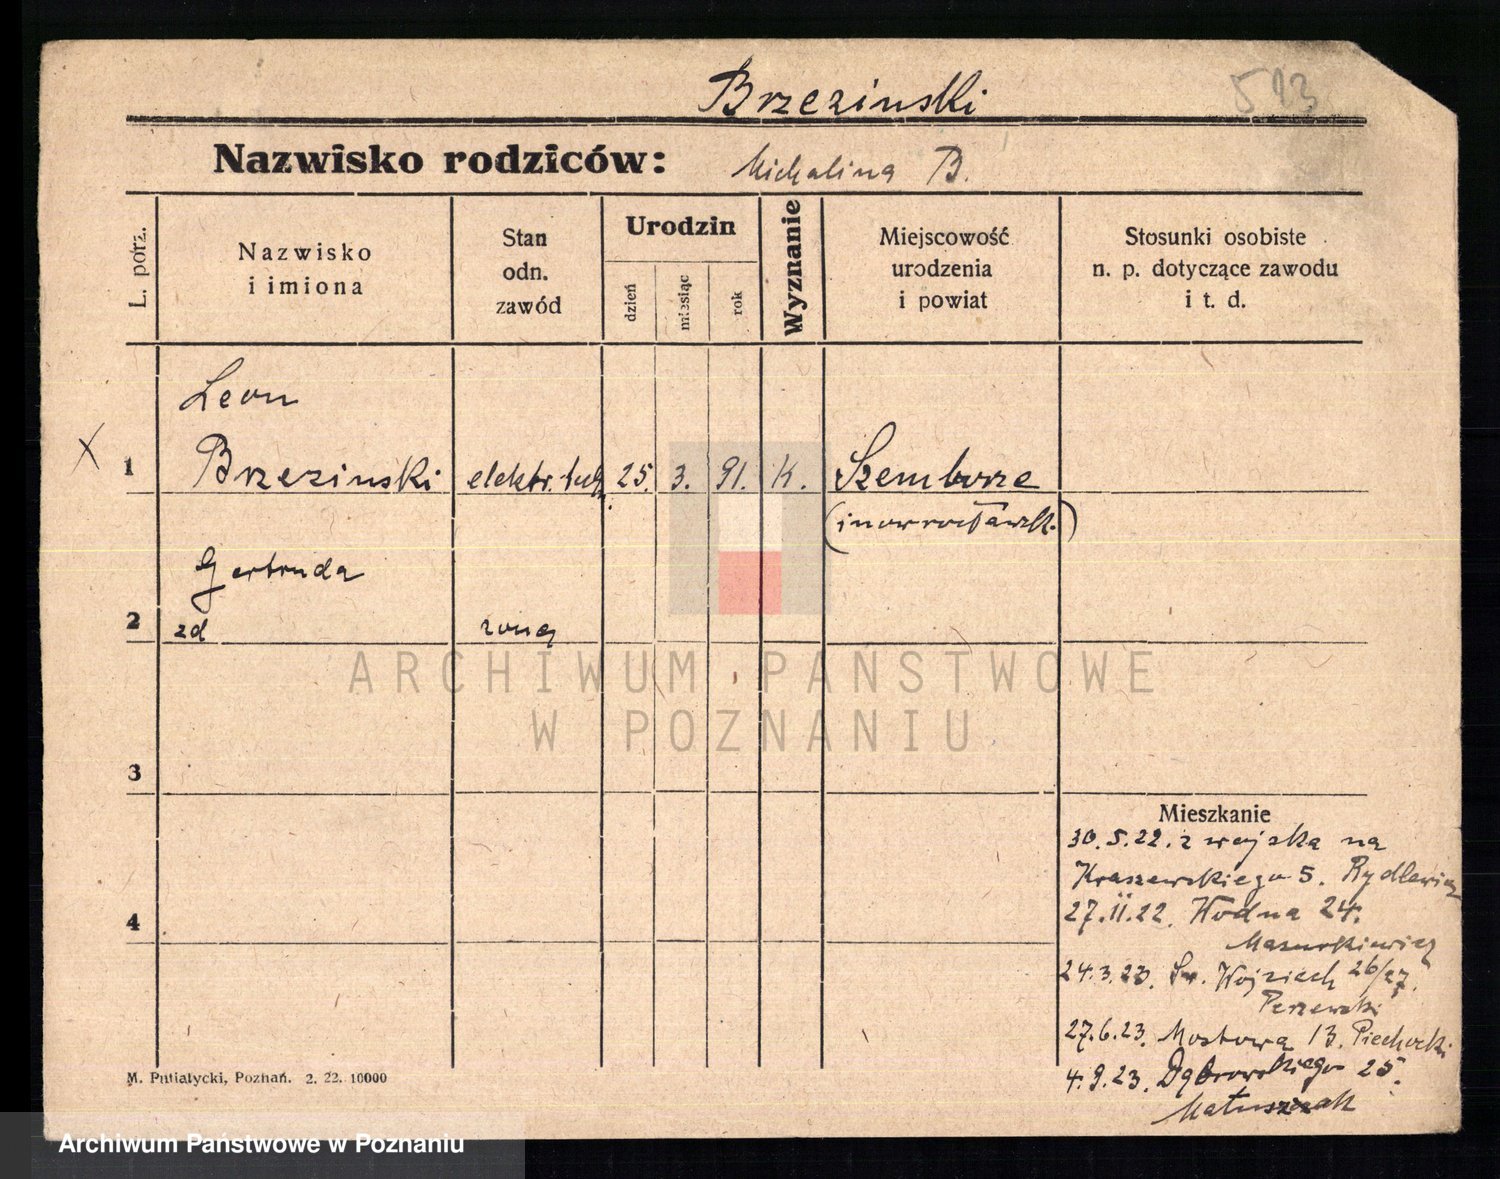 Brzezinski
513
Nazwisko rodziców: Michalina B.
L. porz.
Nazwisko
i imiona
Stan
odn.
zawód
Urodzin
dzień
miesiąc
rok
Wyznanie
Miejscowość
urodzenia
i powiat
Stosunki osobiste
n. p. dotyczące zawodu
i t. d.
Leon
X 1 Brzezinski elektr. tech. 25. 3. 91. K. Szemborze
(inowrocławsk.)
Gertruda
2 zd żona
ARCHIWUM PAŃSTWOWE
W POZNANIU
3
Mieszkanie
30.5.22. z wojska na
Kraszewskiego 5. Rydlewicz
4 27.11.22. Wodna 24.
Mazurkiewicz
24.3.23. Św. Wojciech 26/27.
27.6.23. Mostowa 13. Piechocki
4.9.23. Dąbrowskiego 25.
Matuszczak
M. Putiatycki, Poznań. 2. 22. 10000
Archiwum Państwowe w Poznaniu